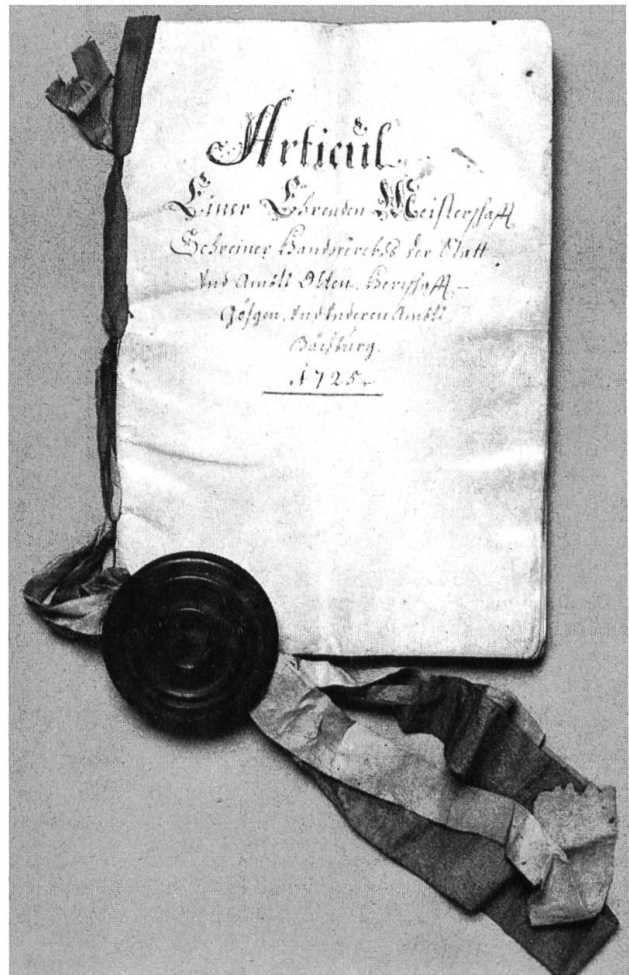 Articul
Einer Ehrenden Meisterschafft
Schreiner Handwerckhs der Statt
Vnd Ambtt Olten, Herrschafft
Gösgen, Vnd Underen Ambtt
Bächburg.
1725.